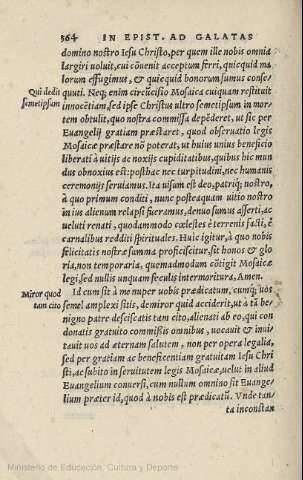 564 IN EPIST. AD GALATAS
domino nostro Iesu Christo, per quem ille nobis omnia
largiri voluit, cui cõuenit acceptum ferri, quicquid ma
lorum effugimus, & quicquid bonorum sumus conse-
Qui dedit quuti. Neq; enim circũcisio Mosaica cuiquam restituit
semetipsum innocẽtiam, sed ipse Christus ultro semetipsum in mor-
tem obtulit, quo nostra commissa depẽderet, ut sic per
Euangelij gratiam præstaret, quod obseruatio legis
Mosaicæ præstare nõ poterat, ut huius unius beneficio
liberati à uitijs ac noxijs cupiditatibus, quibus hic mun
dus obnoxius est: posthac nec turpitudini, nec humanis
ceremonijs seruiamus. Ita uisum est deo, patriq; nostro,
à quo primum conditi, nunc posteaquam uitio nostro
in ius alienum relapsi fueramus, denuo sumus asserti, ac
ueluti renati, quodammodo cœlestes è terrenis facti, è
carnalibus redditi spirituales. Huic igitur, à quo nobis
felicitatis nostræ summa proficiscitur, sit honos & glo
ria, non temporaria, quemadmodum cõtigit Mosaicæ
legi, sed nullis unquam seculis intermoritura. Amen.
Miror quod Id cum sit à me nuper uobis prædicatum, cumq; uos
tam cito semel amplexi sitis, demiror quid acciderit, ut à tã be
nigno patre desciscatis tam cito, alienati ab eo, qui con
donatis gratuito commissis omnibus, uocauit & inui
tauit uos ad æternam salutem, non per opera legalia,
sed per gratiam ac beneficentiam gratuitam Iesu Chri
sti, ac subito in seruitutem legis Mosaicæ, uelut in aliud
Euangelium conuersi, cum nullum omnino sit Euange-
lium præter id, quod à nobis est prædicatũ. Vnde tan-
ta inconstan
Ministerio de Educación, Cultura y Deporte